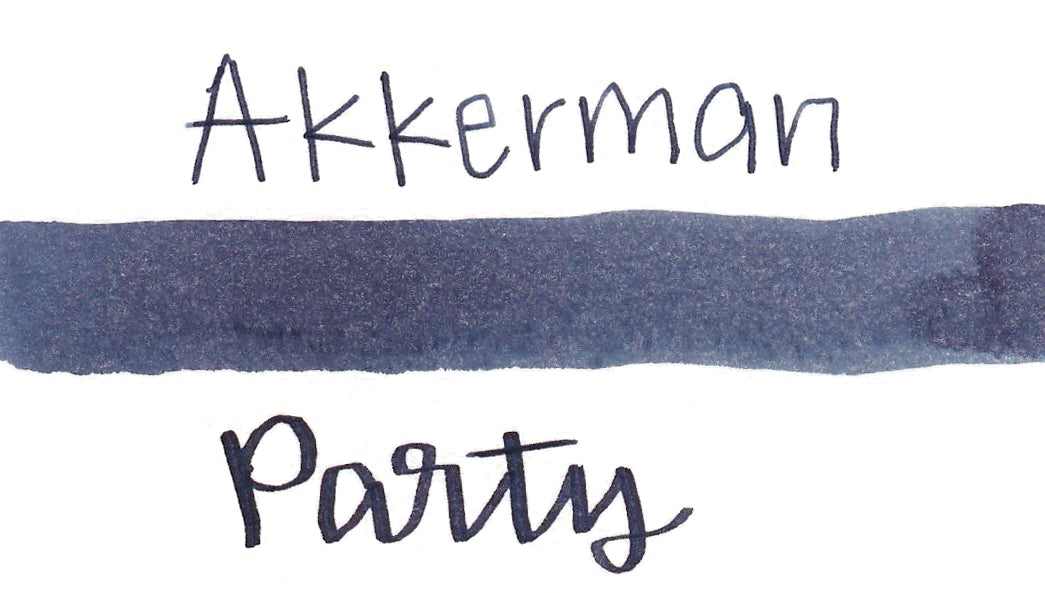 Akkerman
Party